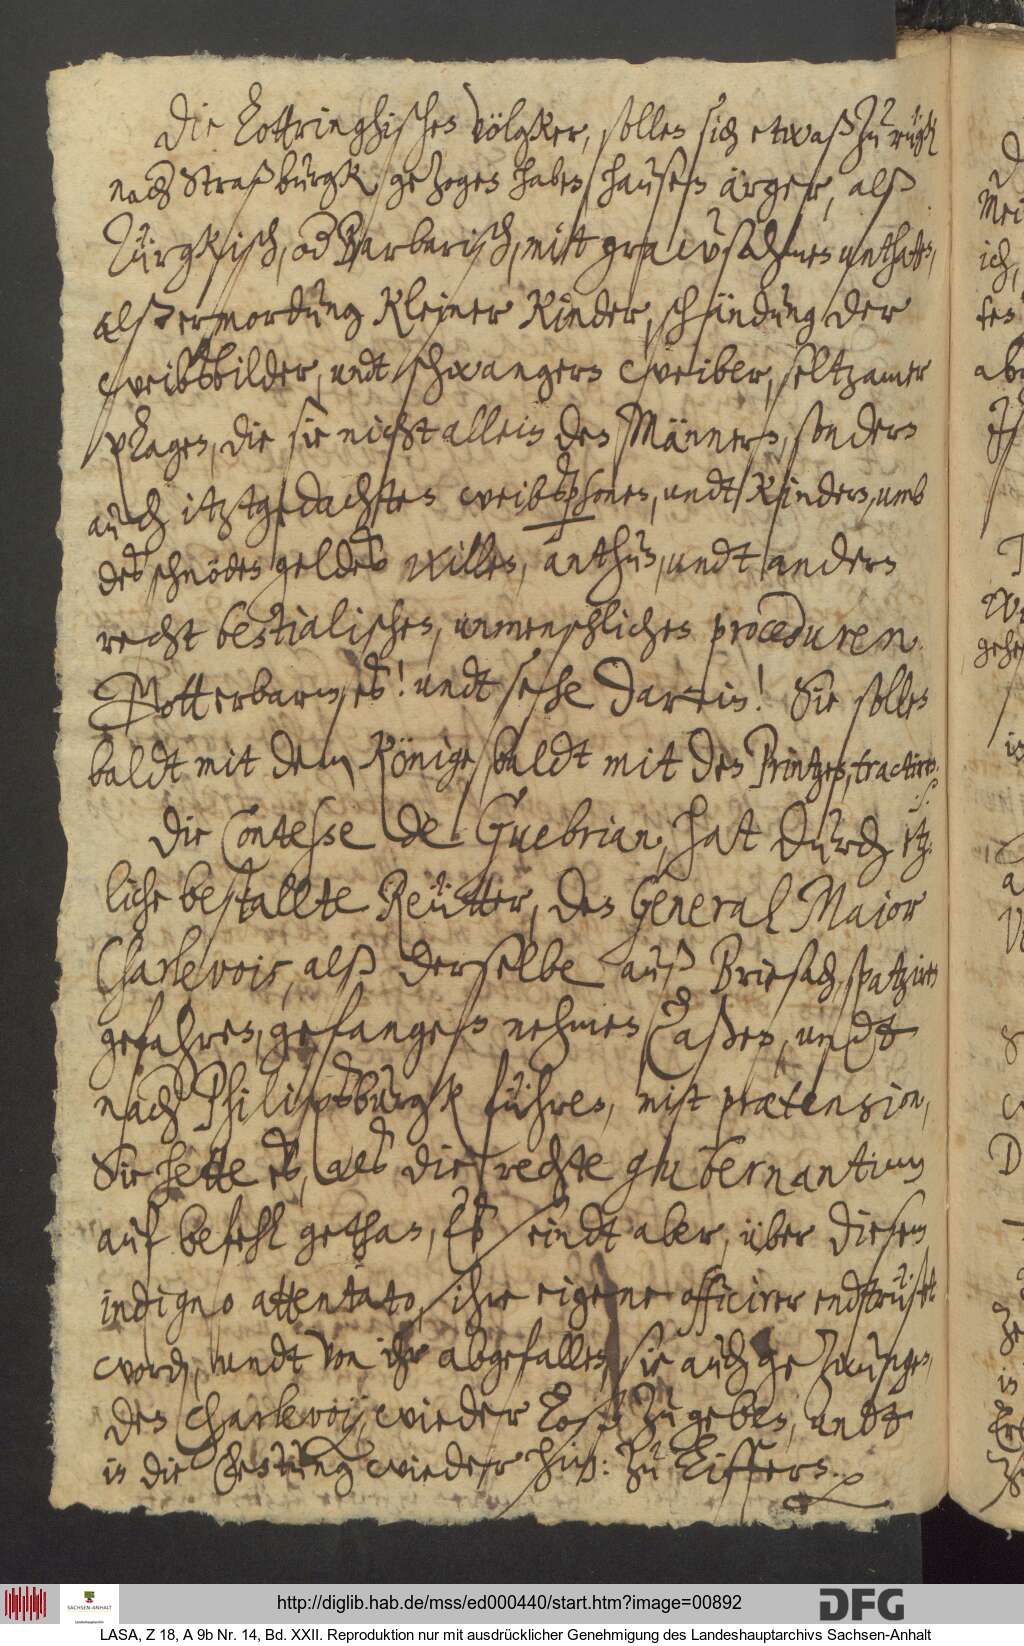 Die Lottringhischen Völgker, sollen sich etwaß zu rügk
nach Straßburgk gezogen haben, hausen ärger, alß
Türgkisch, od Barbarisch, mitt grawsahmen unthaten,
alß ermordung kleiner kinder, schändung der
weibsbilder, undt schwangern weiber, seltzamer
plagen, die sie nicht allein den Männern, sondern
auch itztgedachten weibspersonen, undt kindern, umb
des schnöden geldes willen, anthun, undt andern
recht bestialischen, unmenschlichen proceduren.
Gott erbarm es! undt sehe darein! Sie sollen
baldt mit dem Könige, baldt mit den Printzen, tractiren.
Die Contesse de Guebrian, hatt durch etz¬
liche bestallte Reütter, den General Major
Charlevois, alß derselbe auß Briesach, spatziren
gefahren, gefangen nehmen laßen, undt
nach Philipsburgk führen, mitt prætension,
Sie hette es, als die rechte gubernantinn
auf befehl gethan, Es seindt aber, über diesem
indigno attentato, ihre eigene officirer endtrüstet
word, undt von ihr abgefallen, sie auch gezwungen,
den Charlevoix, wieder loß zu geben, undt
in die Vestung wieder hin: zu liffern.
http://diglib.hab.de/mss/ed000440/start.htm?image=00892
DFG
SACHSEN-ANHALT
LASA, Z 18, A 9b Nr. 14, Bd. XXII. Reproduktion nur mit ausdrücklicher Genehmigung des Landeshauptarchivs Sachsen-Anhalt